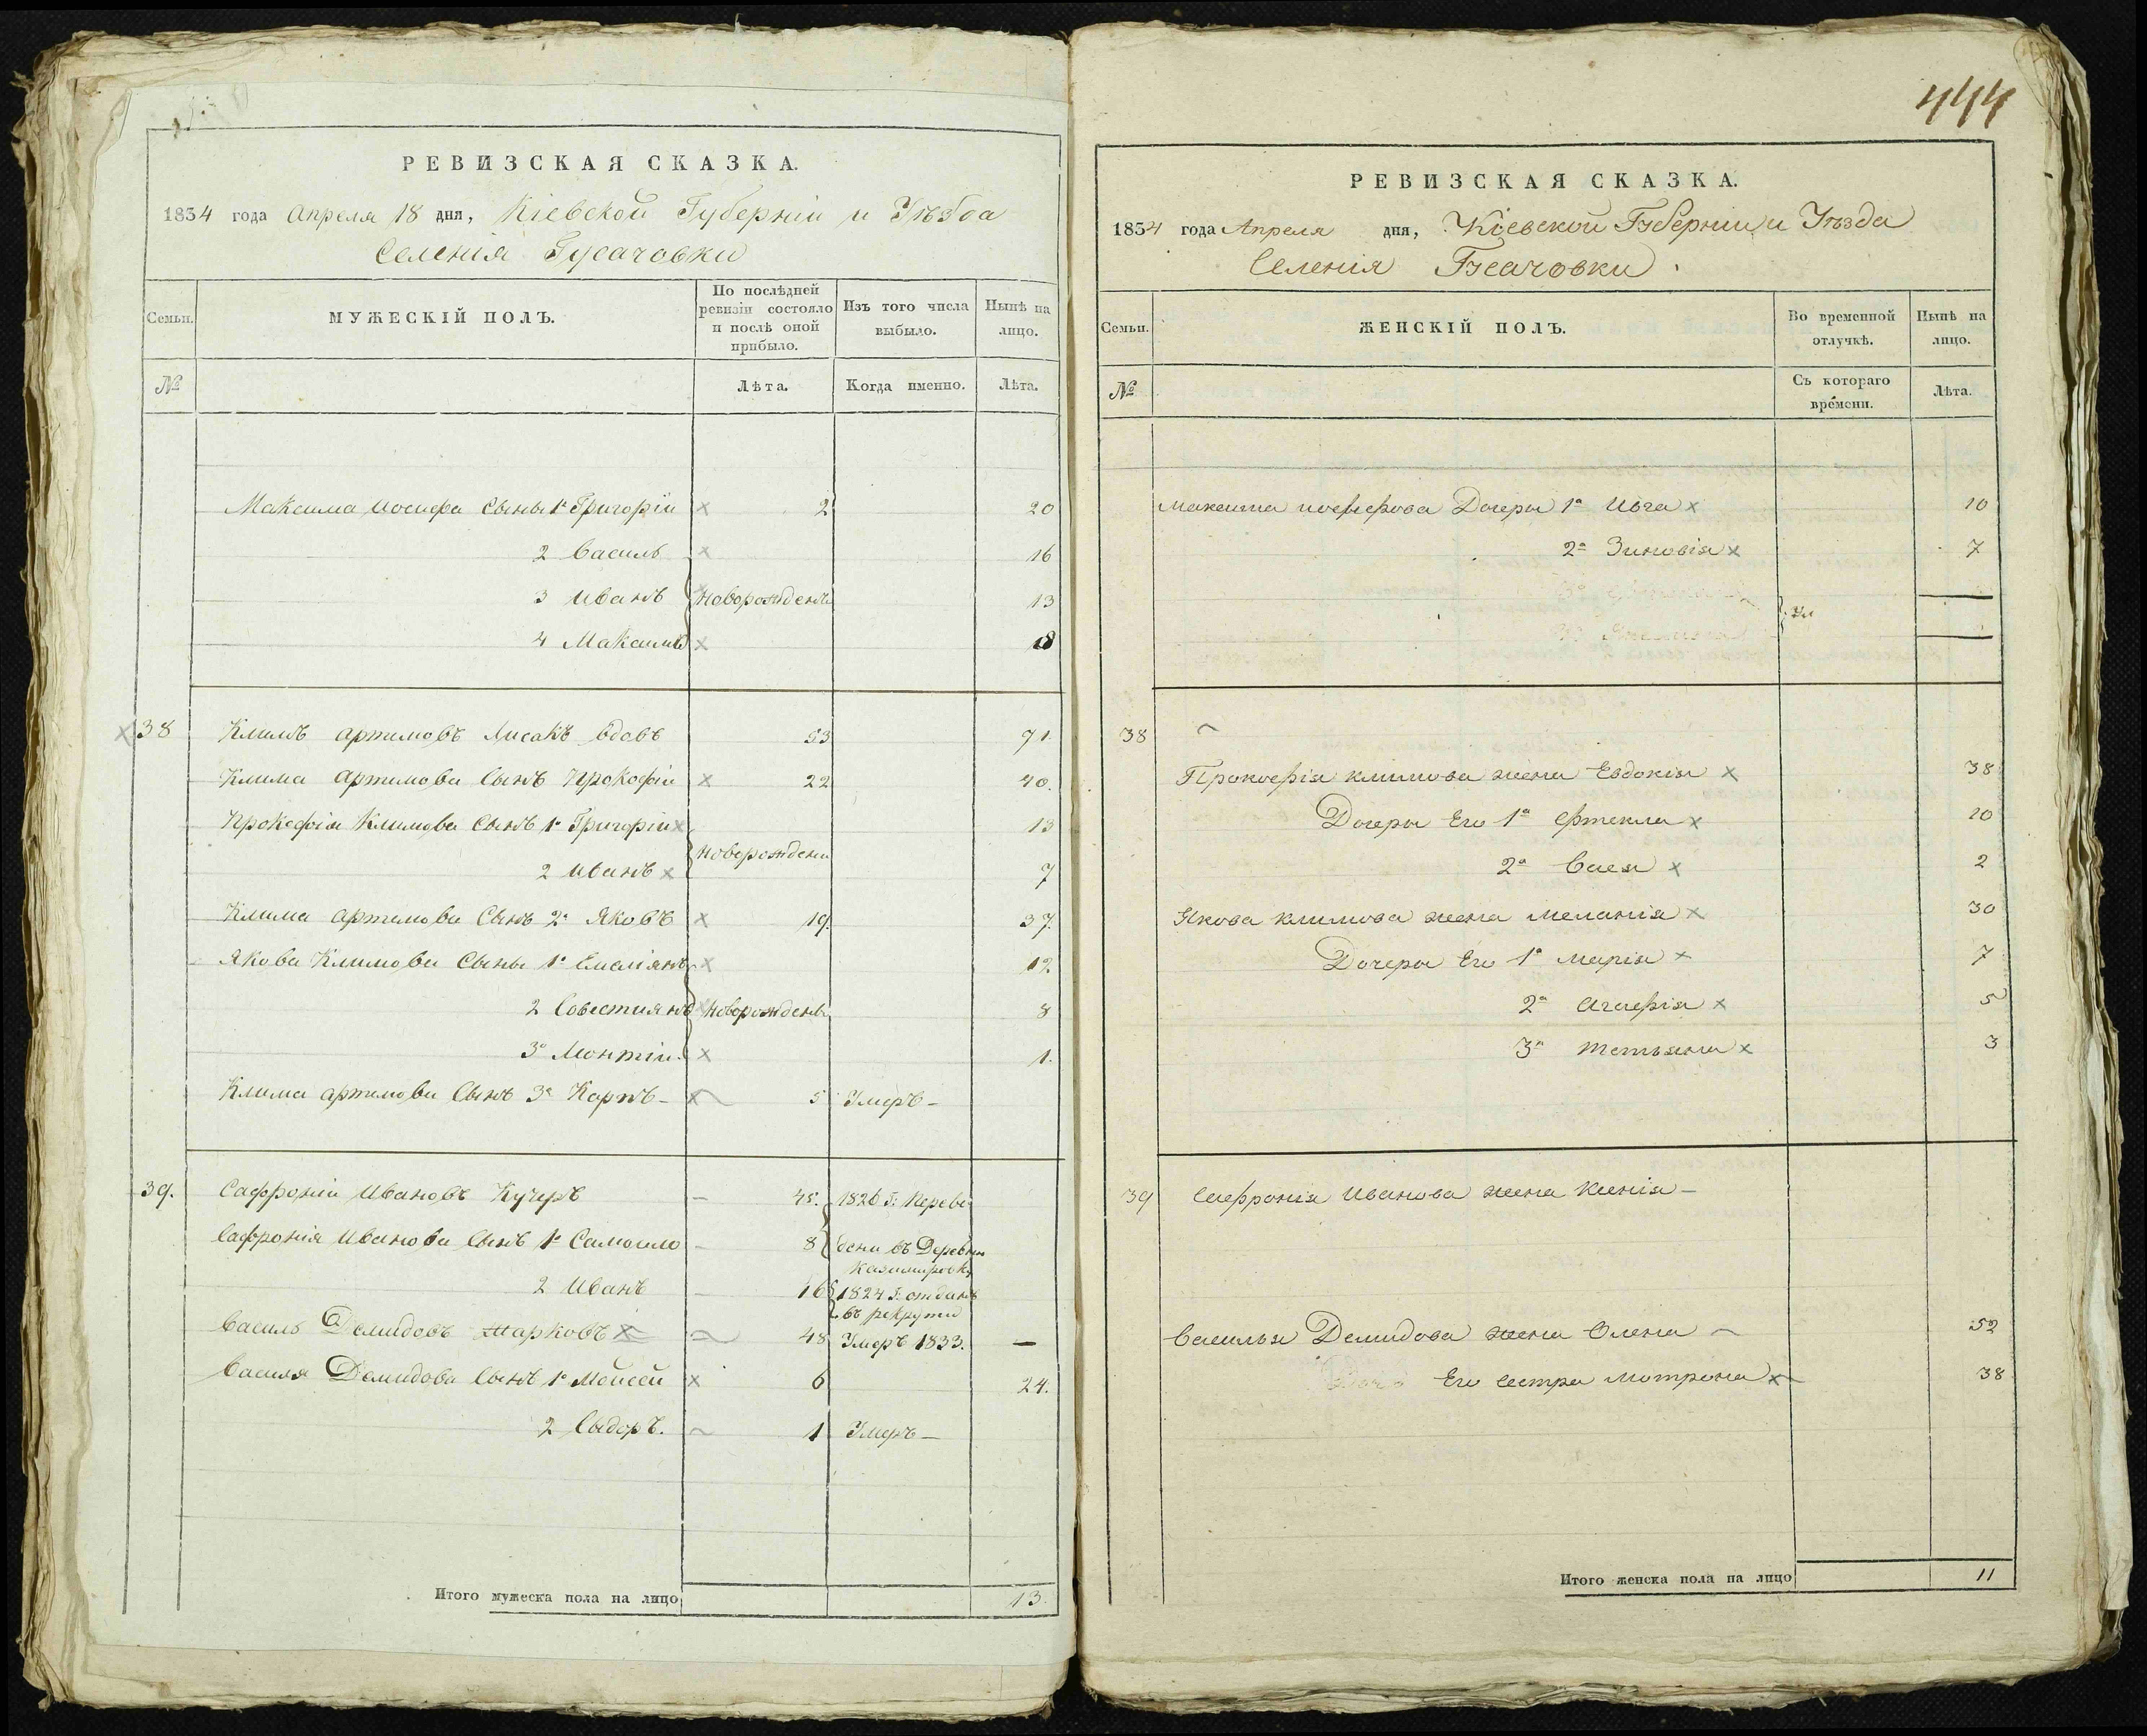 РЕВИЗСКАЯ СКАЗКА.
1834 года Апреля 18 дня, Кіевской Губерніи и Уѣзда
Селенія Гусачовки
Семьи. МУЖЕСКІЙ ПОЛЪ. По послѣдней ревизіи состояло и послѣ оной прибыло. Изъ того числа выбыло. Нынѣ на лицо.
№ Лѣта. Когда именно. Лѣта.
Максима Иосифа Сыны 1й Григорій 2 20
2 Василь 16
3 Иванъ Новорожденъ 13
4 Максимъ 8
38 Климъ Артимовъ Лисакъ вдовъ 53 71.
Клима Артимова Сынъ Прокофій 22 40.
Прокофія Климова Сынъ 1й Григорій 13
Новорождени
2 Иванъ 7
Клима Артимова Сынъ 2й Яковъ 19. 37.
Якова Климова Сыны 1й Емеліянъ 12
2 Совестиянъ Новорождены 8
3й Монтій 1.
Клима Артимова Сынъ 3й Карпъ 5 Умеръ
39. Сафроній Ивановъ Кучеръ 45. 1826 г. Переве
Сафронія Иванова Сынъ 1й Самоило 8 дени въ Деревню
Казимировку
2 Иванъ 16 1824 г. отданъ
въ рекруты
Василь Демидовъ Марковъ 48 Умеръ 1833. —
Василя Демидова Сынъ 1й Мойсей 6 24.
2 Сыдоръ. 1 Умеръ
Итого мужеска пола на лицо 13.
444
РЕВИЗСКАЯ СКАЗКА.
1834 года Апреля дня, Кіевской Губерніи и Уѣзда
Селенія Гусачовки
Семьи. ЖЕНСКІЙ ПОЛЪ. Во временной отлучкѣ. Нынѣ на лицо.
№ Съ котораго времени. Лѣта.
Максима иосифова Дочеры 1я Ивга 10
2я Зиновія 7
38
Прокофія климова жена Евдокія 38
Дочеры Его 1я Фтекла 10
2я Васа 2
Якова климова жена Меланія 30
Дочеры Его 1я Марія 7
2я Агафія 5
3я Тетьяна 3
39 Сафронія Иванова жена Ксенія
Василья Демидова жена Олена 52
Его сестра Мотрона 38
Итого женска пола на лицо 11